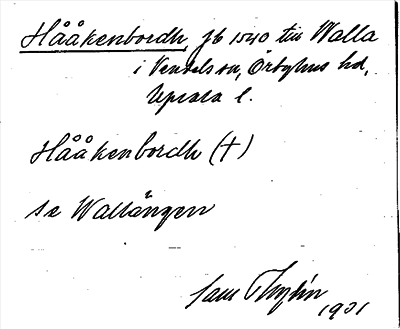 Hååkenbordh, jb 1540 till Walla
i Vendels sn, Örbyhus hd,
Upsala l.
Hååkenbordh (†)
se Wallängen
1931